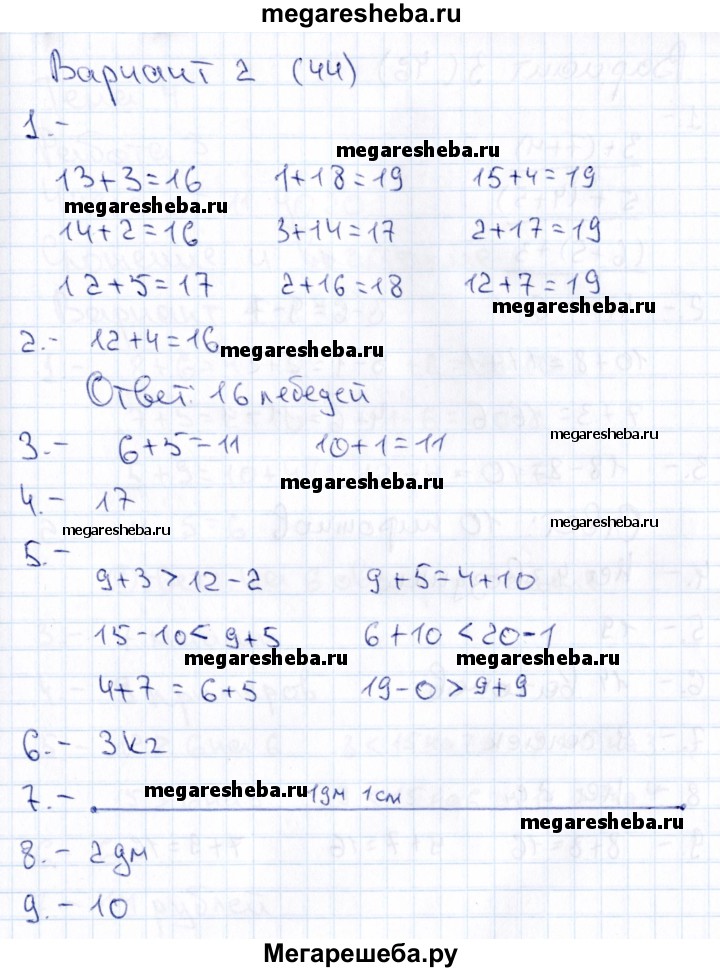 megaresheba.ru
Вариант 2 (44)
1.-
megaresheba.ru
13+3=16 1+18=19 15+4=19
megaresheba.ru
14+2=16 3+14=17 2+17=19
12+5=17 2+16=18 12+7=19
megaresheba.ru
2.- 12+4=16
megaresheba.ru
Ответ: 16 лебедей
3.- 6+5=11 10+1=11
megaresheba.ru
megaresheba.ru
4.- 17
megaresheba.ru
megaresheba.ru
5.-
9+3 > 12-2 9+5=4+10
15-10 < 9+5 6+10 < 20-1
megaresheba.ru megaresheba.ru
4+7 = 6+5 19-0 > 9+9
6.- 3 кг
7.- 1дм 1см
megaresheba.ru
megaresheba.ru
8.- 2 дм
9.- 10
Мегарешеба.ру